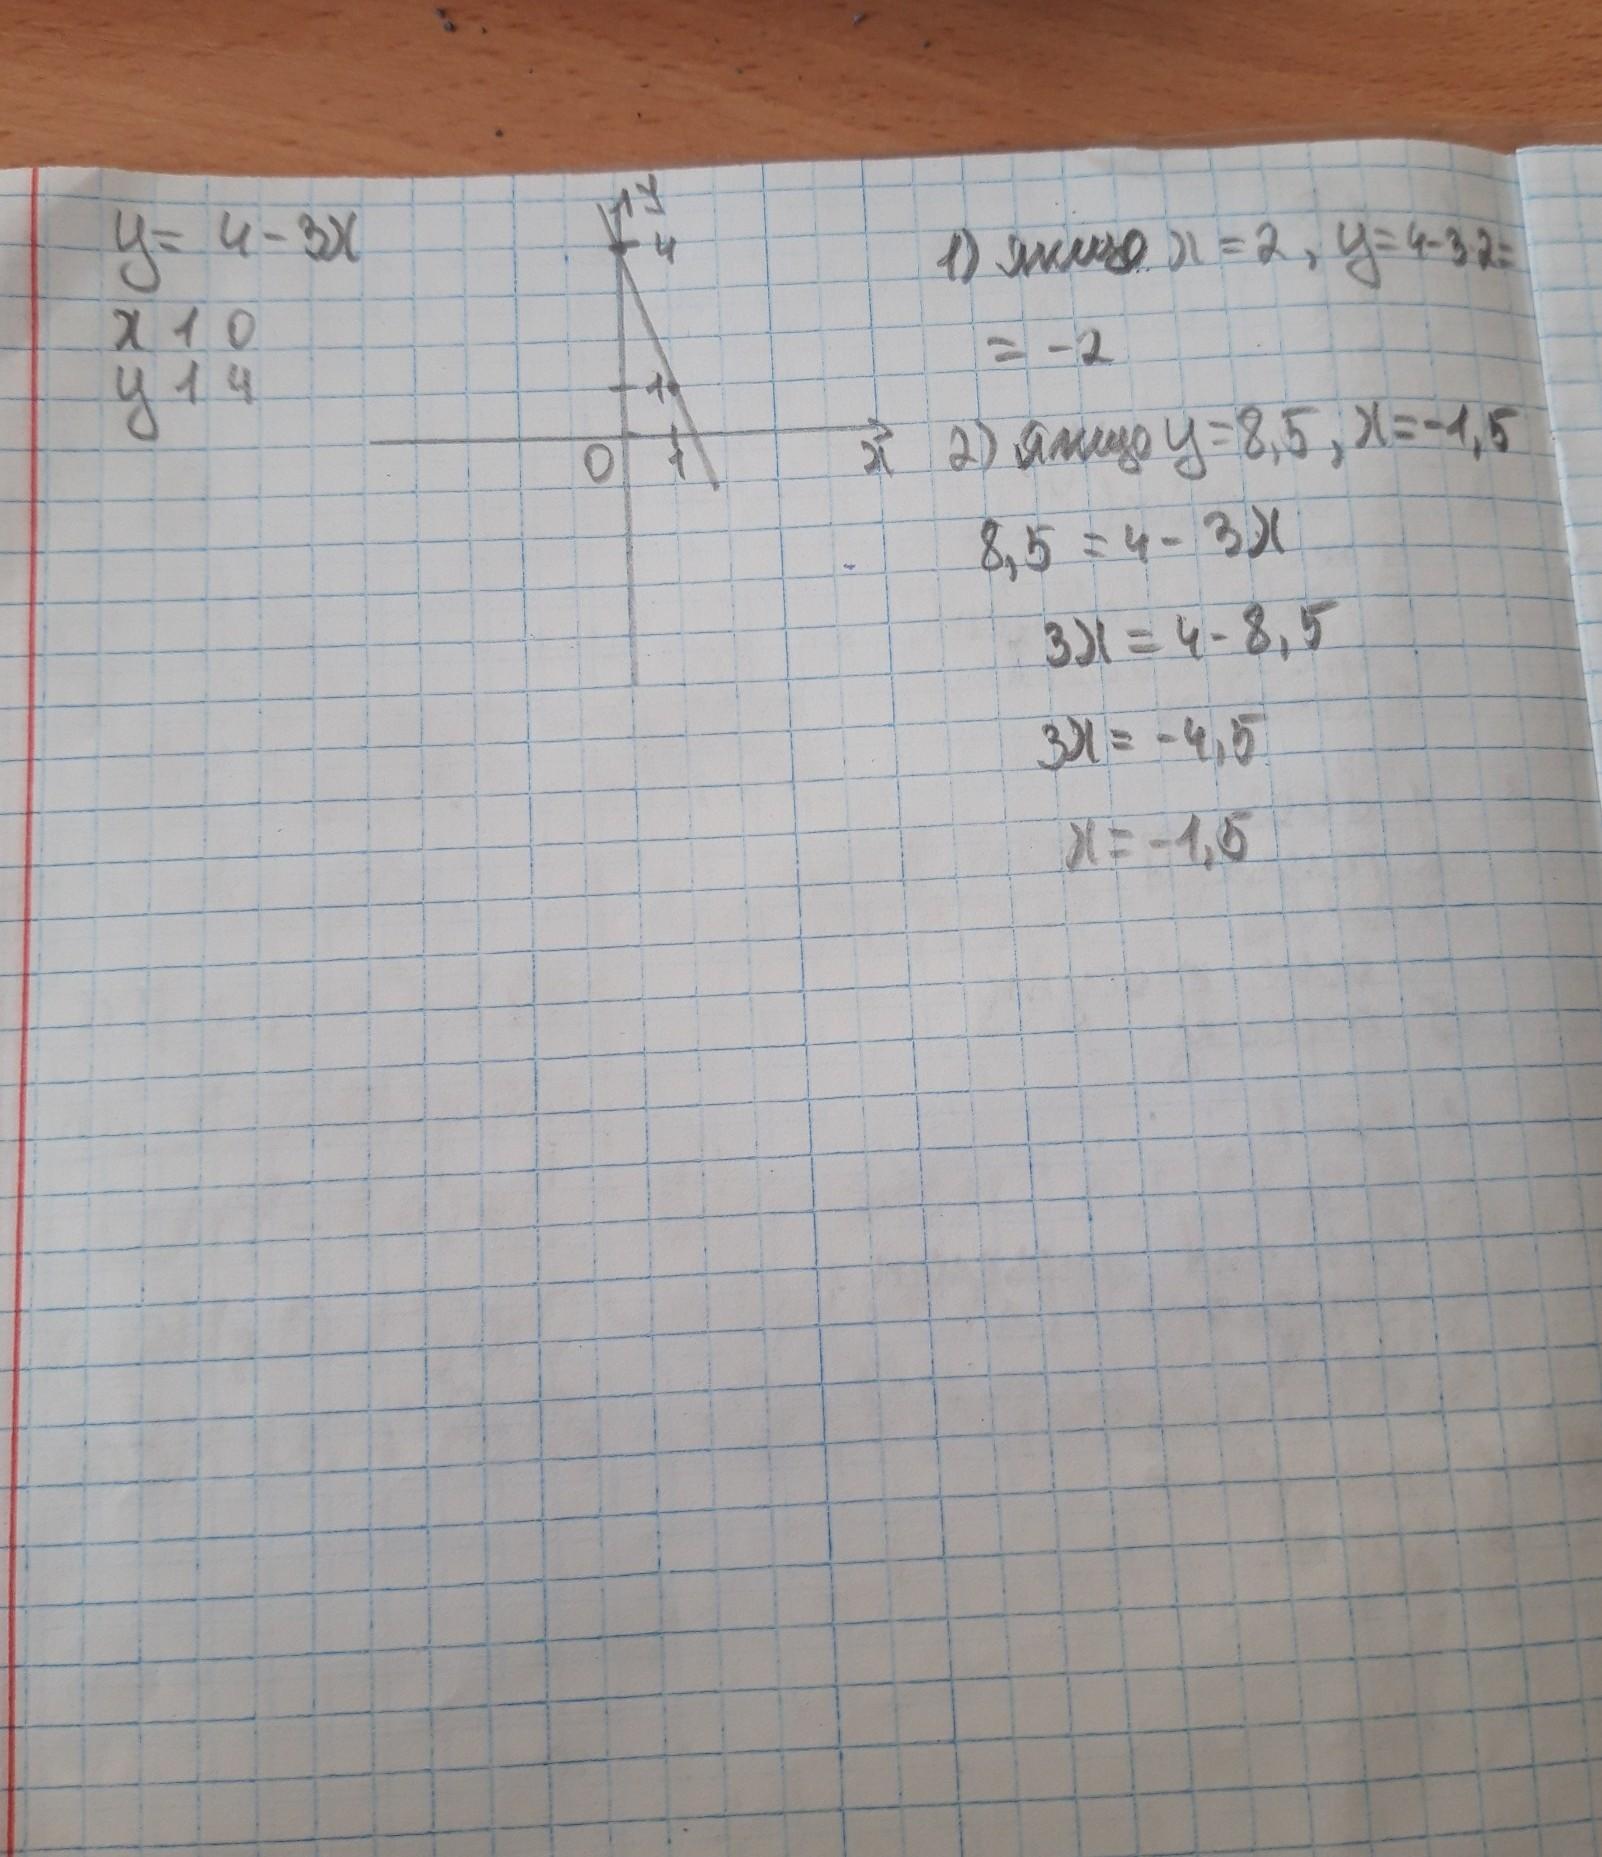 y = 4 - 3x
x 1 0
y 1 4
y
4
1
0 1 x
1) якщо x = 2, y = 4-3·2=
= -2
2) якщо y = 8,5, x = -1,5
8,5 = 4 - 3x
3x = 4 - 8,5
3x = -4,5
x = -1,5